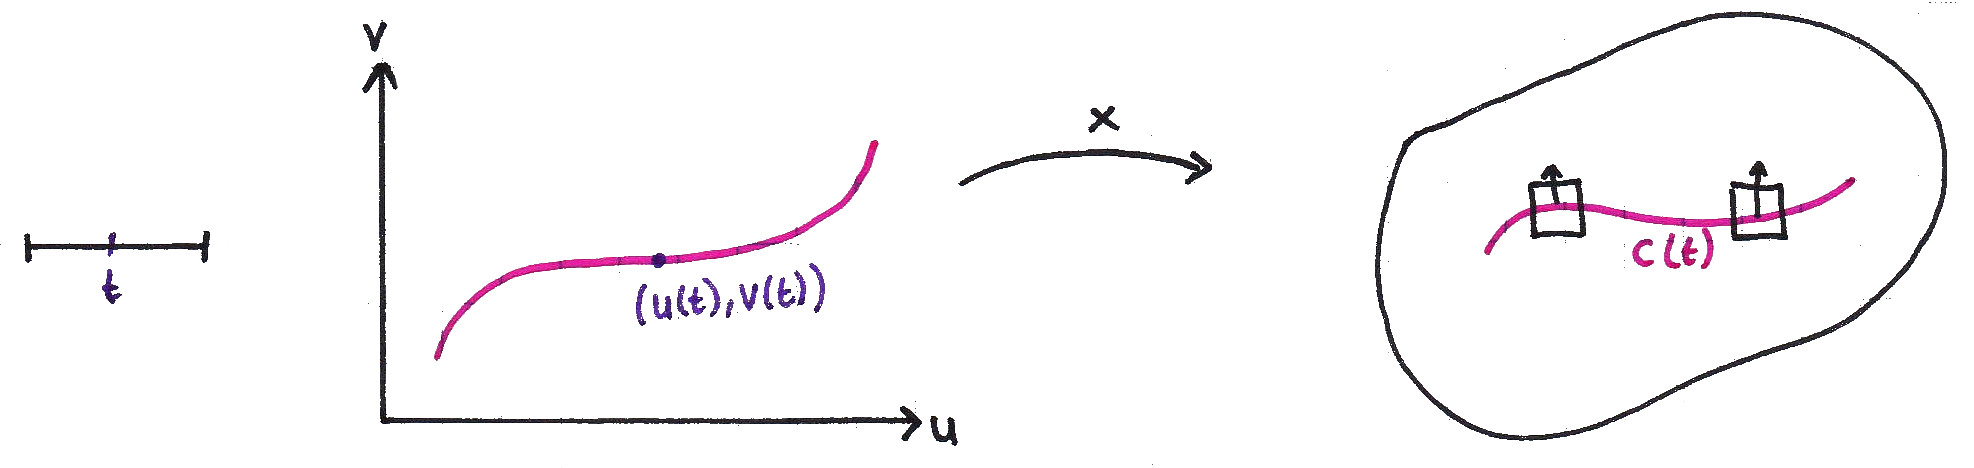 t
v
(u(t),v(t))
u
x
c(t)